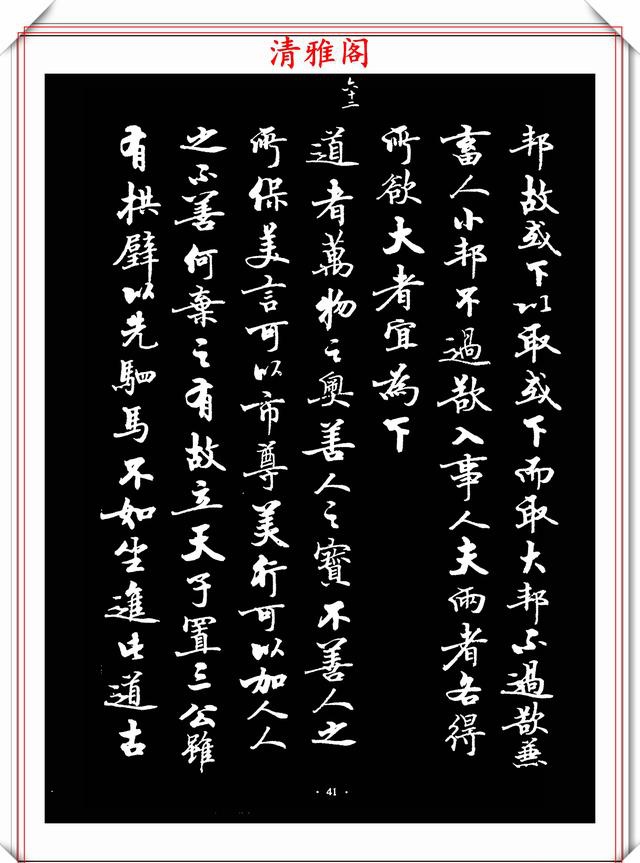 清雅阁
六十二
邦故或下以取或下而取大邦不過欲兼
畜人小邦不過欲入事人夫兩者各得
所欲大者宜為下
道者萬物之奧善人之寶不善人之
所保美言可以市尊美行可以加人人
之不善何棄之有故立天子置三公雖
有拱璧以先駟馬不如坐進此道古
· 41 ·